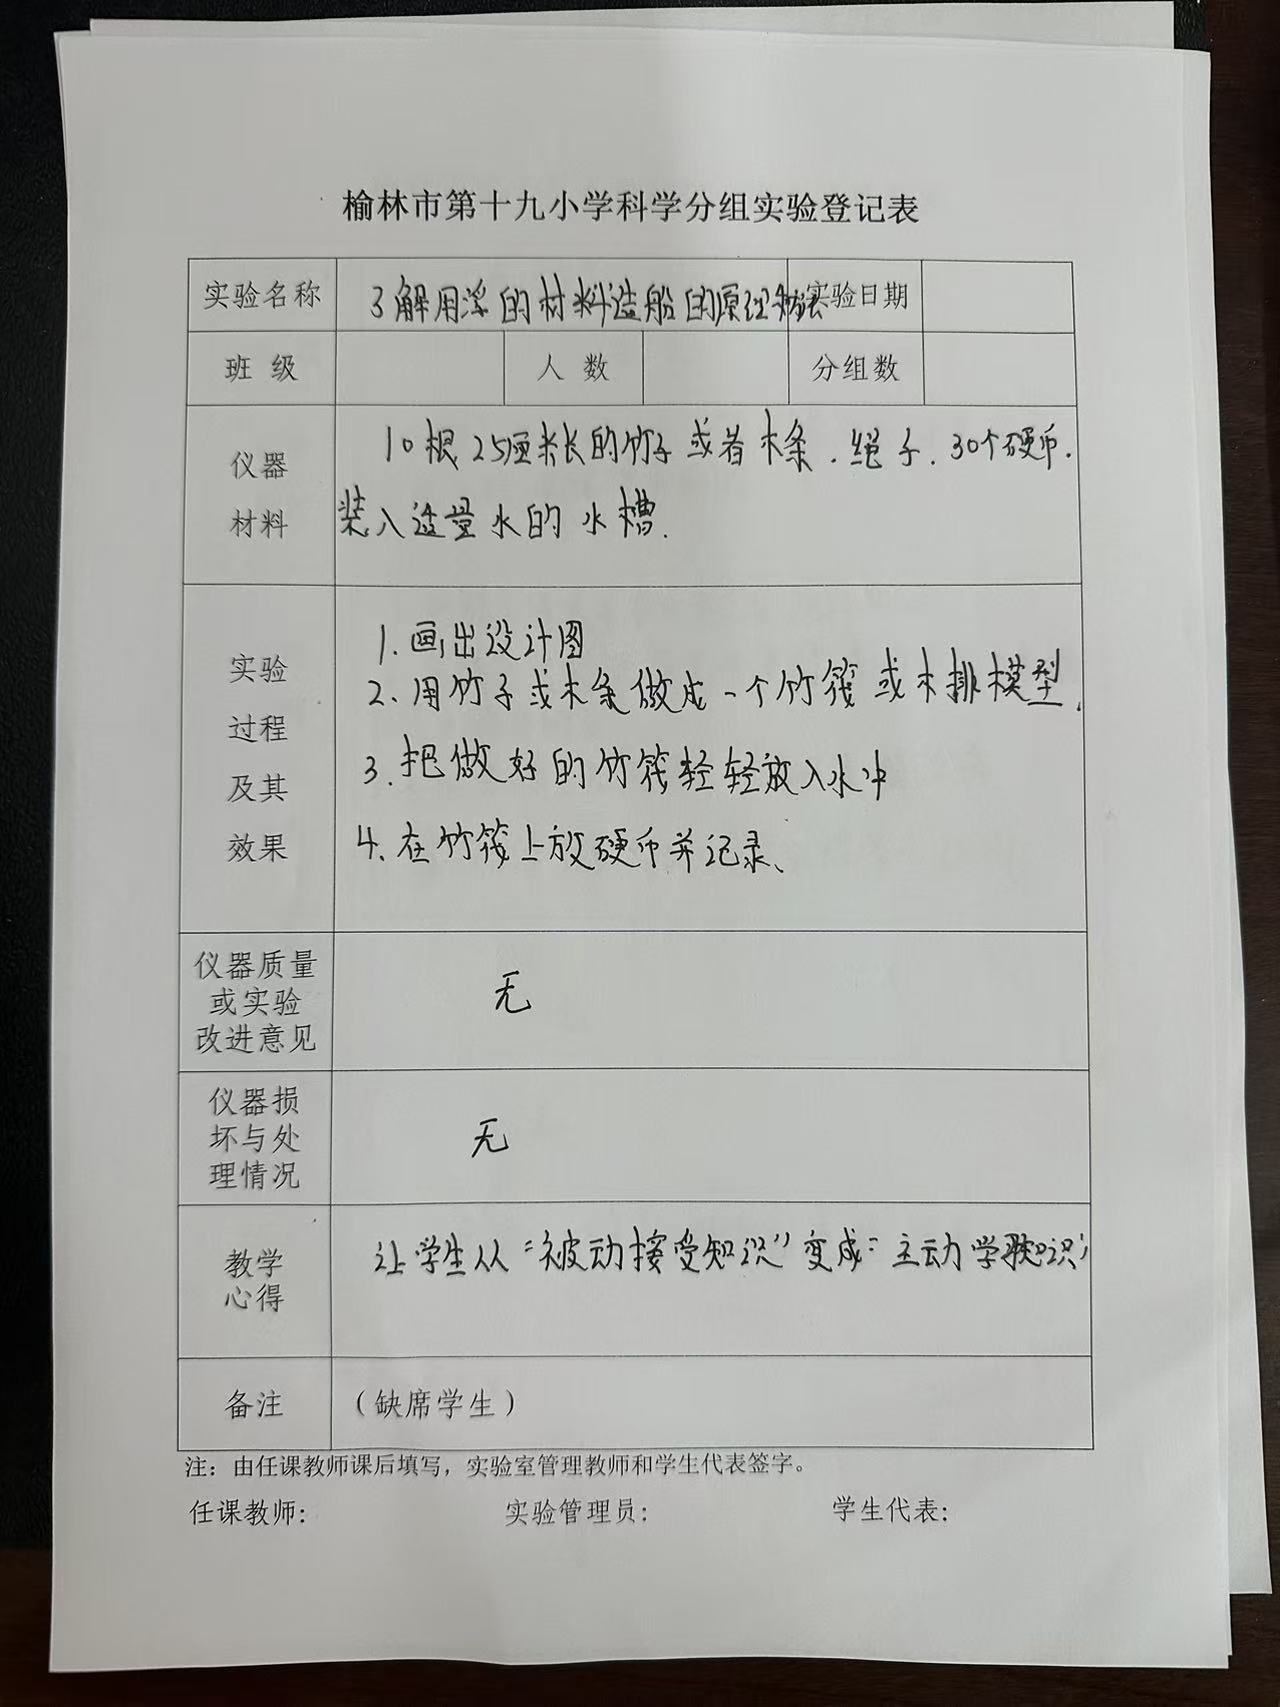 榆林市第十九小学科学分组实验登记表
实验名称 了解用浮的材料造船的原理和方法 实验日期
班 级 人 数 分组数
仪器
材料
10根25厘米长的竹子或者木条．绳子．30个硬币．
装入适量水的水槽．
实验
过程
及其
效果
1．画出设计图
2、用竹子或木条做成一个竹筏或木排模型．
3．把做好的竹筏轻轻放入水中
4、在竹筏上放硬币并记录、
仪器质量
或实验
改进意见
无
仪器损
坏与处
理情况
无
教学
心得
让学生从“被动接受知识”变成“主动学习知识”
备注 （缺席学生）
注：由任课教师课后填写，实验室管理教师和学生代表签字。
任课教师： 实验管理员： 学生代表：